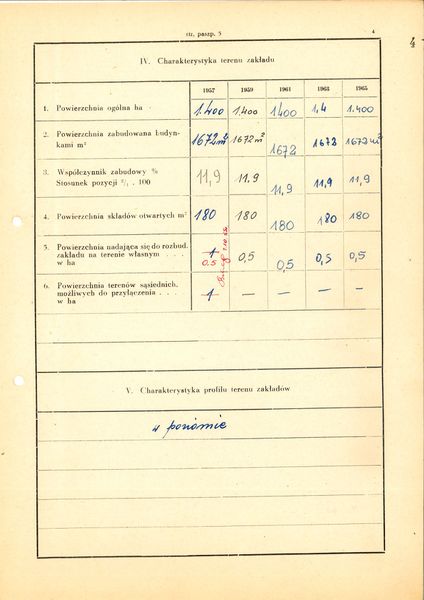 str. paszp. 5
4
4
IV. Charakterystyka terenu zakładu
1957 1959 1961 1963 1965
1. Powierzchnia ogólna ha 1.400 1.400 1400 1,4 1.400
2. Powierzchnia zabudowana budyn-
kami m² 1672m² 1672m² 1672 1672 1672m²
3. Współczynnik zabudowy %
Stosunek pozycji 2/1 . 100 11,9 11.9 11,9 11,9 11,9
4. Powierzchnia składów otwartych m² 180 180 180 180 180
5. Powierzchnia nadająca się do rozbud.
zakładu na terenie własnym . . . 1
w ha 0.5 0,5 0,5 0,5 0,5
6. Powierzchnia terenów sąsiednich,
możliwych do przyłączenia . . .
w ha 1 — — — —
V. Charakterystyka profilu terenu zakładów
w poziomie